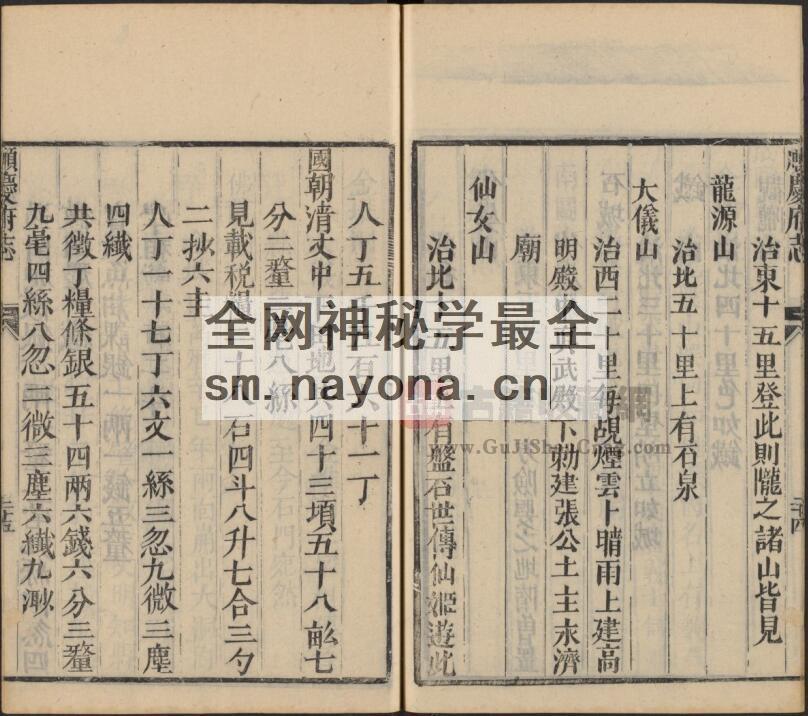 慶府志
治東十五里登此則隴之諸山皆見
龍源山
治北五十里上有石泉
大儀山
治西二十里每覘煙雲卜晴雨上建高
明殿 武殿下勅建張公土主永濟
廟
仙女山
治北 五里 有盤石世傳仙姬遊此
人丁五 百六十一丁
國朝清丈中 地 六四十三頃五十八畝七
分二釐 八絲
見載税糧 十八石四斗八升七合三勺
二抄六圭
人丁一十七丁六文一絲三忽九微三塵
四纖
共徵丁糧條銀五十四兩六錢六分三釐
九毫四絲八忽二微三塵六纖九渺
順慶府志
全网神秘学最全
sm.nayona.cn
www.GuJiShuGe.COM